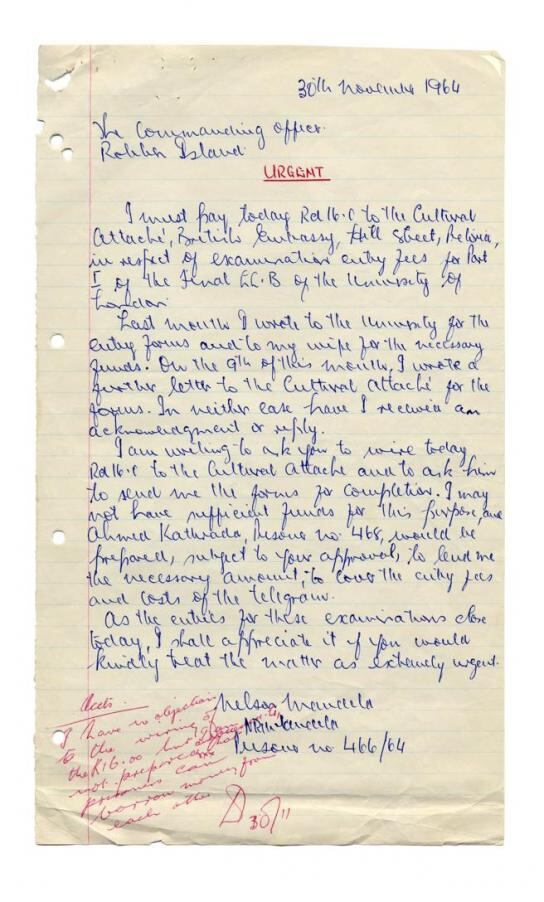 30th November 1964
The Commanding Officer
Robben Island.
URGENT
I must pay today Rd16.0 to the Cultural
Attaché, British Embassy, Hill Street, Pretoria,
in respect of examination entry fees for Part
I of the Final LL.B of the University of
London.
Last month I wrote to the University for the
entry forms and to my wife for the necessary
funds. On the 9th of this month, I wrote a
further letter to the Cultural attaché for the
forms. In neither case have I received an
acknowledgment or reply.
I am writing to ask you to wire today
Rd16.0 to the Cultural attache and to ask him
to send me the forms for completion. I may
not have sufficient funds for this purpose, and
Ahmed Kathrada, Prisoner no. 468, would be
prepared, subject to your approval, to lend me
the necessary amount, to cover the entry fees
and costs of the telegram.
As the entries for these examinations close
today, I shall appreciate it if you would
kindly treat the matter as extremely urgent.
Nelson Mandela
NRMandela
Prisoner no 466/64
I have no objection
to the wiring of
the R16.00 but
not prepared that
prisoners can
borrow money from
each other
30/11